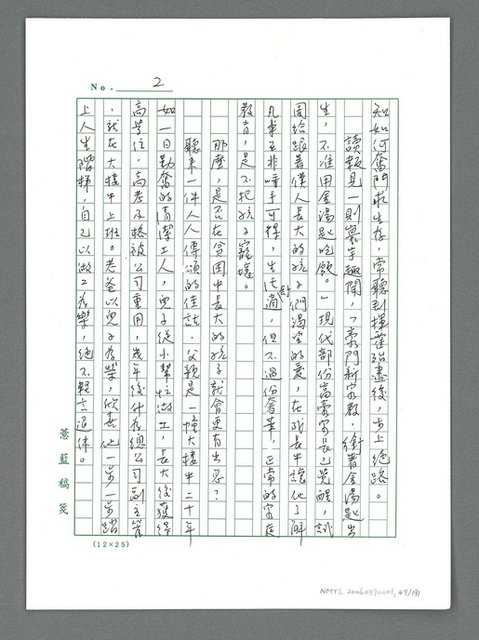 No. 2
知如何奮鬥求生存，常聽到揮霍殆盡後，步上絕路。
讀報見一則寰宇趣聞，「豪門新家教，銜著金湯匙出
生，不准用金湯匙吃飯。」現代部份富豪家長已覺醒，試
圖給跟著僕人長大的孩子們渴望的愛，在成長中讓他了解
凡事並非唾手可得，生活舒適，但不過份奢華，正常的家庭
教育，是不把孩子寵壞。
那麼，是否在貧困中長大的孩子就會更有出息？
聽來一件人人傳頌的佳話，父親是一幢大樓中二十年
如一日勤奮的清潔工人，兒子從小幫忙做工，長大後獲得
高學位，高考及格被公司重用，幾年後升為總公司副主管
，就在大樓中上班。老爸以兒子為榮，欣喜他一步一步踏
上人生階梯，自己以做工為榮，絕不輕言退休。
慧藍稿箋
(12×25)
NMTL 20060370001, 49/191